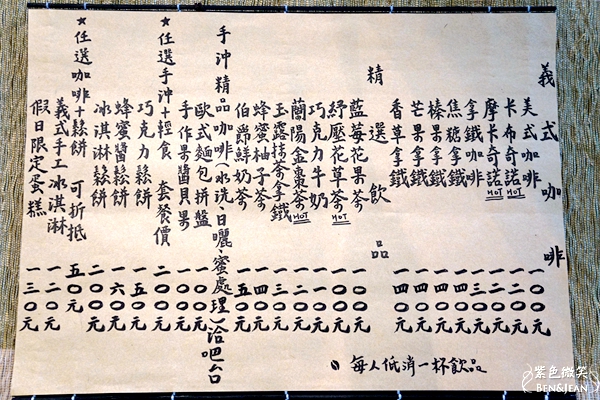 義式咖啡
美式咖啡 一〇〇元
卡布奇諾HOT 一二〇元
摩卡奇諾HOT 一二〇元
拿鐵咖啡 一三〇元
焦糖拿鐵 一四〇元
榛果拿鐵 一四〇元
芒果拿鐵 一四〇元
香草拿鐵 一四〇元
精選飲品
藍莓花果茶 一〇〇元
紓壓花草茶HOT 一〇〇元
巧克力牛奶 一一〇元
蘭陽金棗茶HOT 一二〇元
玉露抹茶拿鐵 一三〇元
蜂蜜柚子茶 一四〇元
伯爵鮮奶茶 一五〇元
手沖精品咖啡(水洗、日曬、蜜處理)洽吧台
歐式麵包拼盤 一〇〇元
手作果醬貝果 一〇〇元
★任選手沖+輕食 套餐價 二〇〇元
巧克力鬆餅 一五〇元
蜂蜜醬鬆餅 一六〇元
冰淇淋鬆餅 二〇〇元
★任選咖啡+鬆餅 可折抵 五〇元
義式手工冰淇淋 一二〇元
假日限定蛋糕 一三〇元
每人低消一杯飲品
紫色微笑
BEN&JEAN